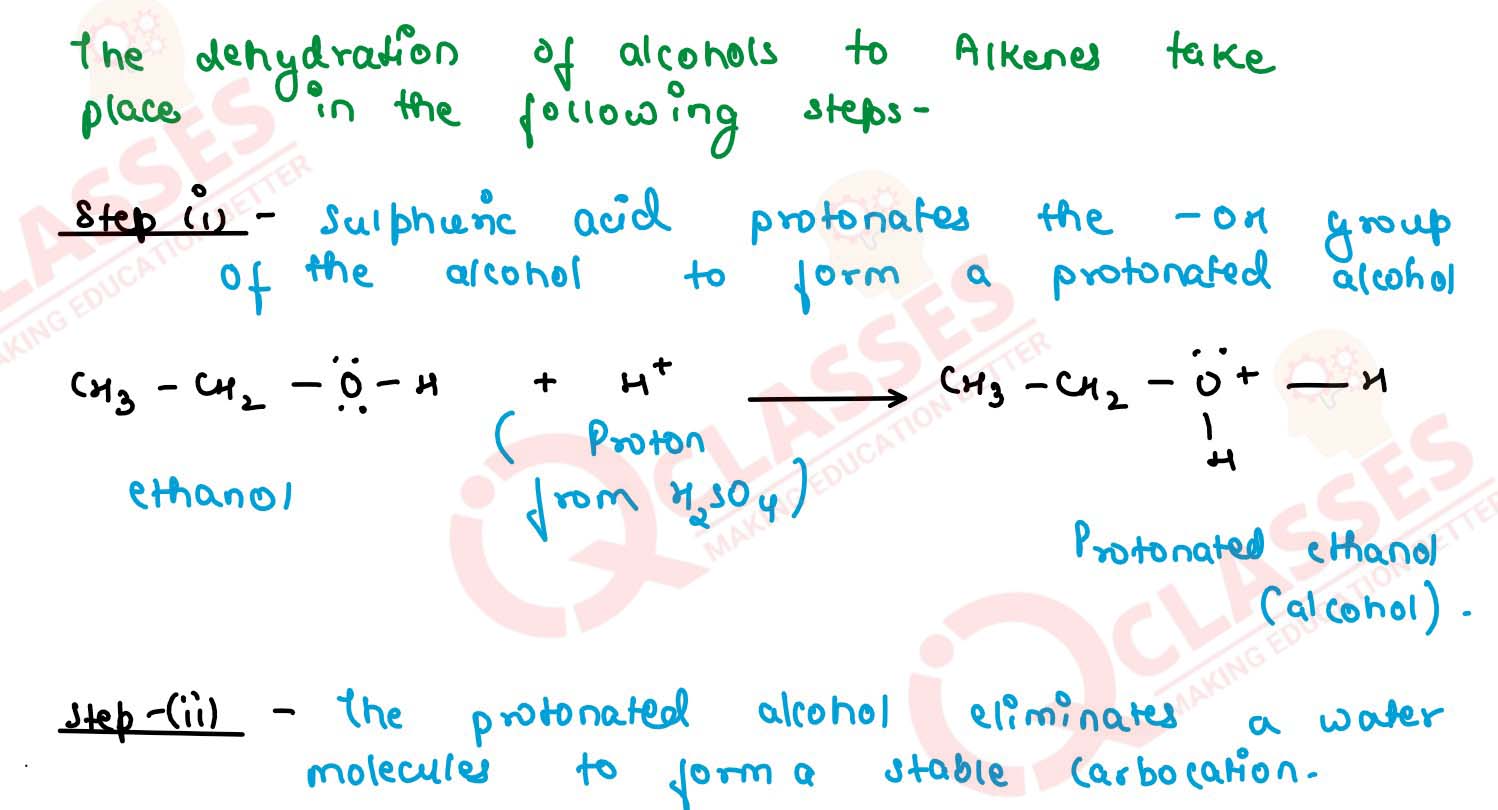 The dehydration of alcohols to Alkenes take
place in the following steps-
Step (i) - Sulphuric acid protonates the -OH group
of the alcohol to form a protonated alcohol
CH₃ - CH₂ - Ö̤ - H + H⁺ ⟶ CH₃ - CH₂ - Ö⁺ — H
|
H
( Proton
from H₂SO₄)
ethanol
Protonated ethanol
(alcohol).
Step-(ii) - The protonated alcohol eliminates a water
molecules to form a stable Carbocation.
iQ CLASSES
MAKING EDUCATION BETTER